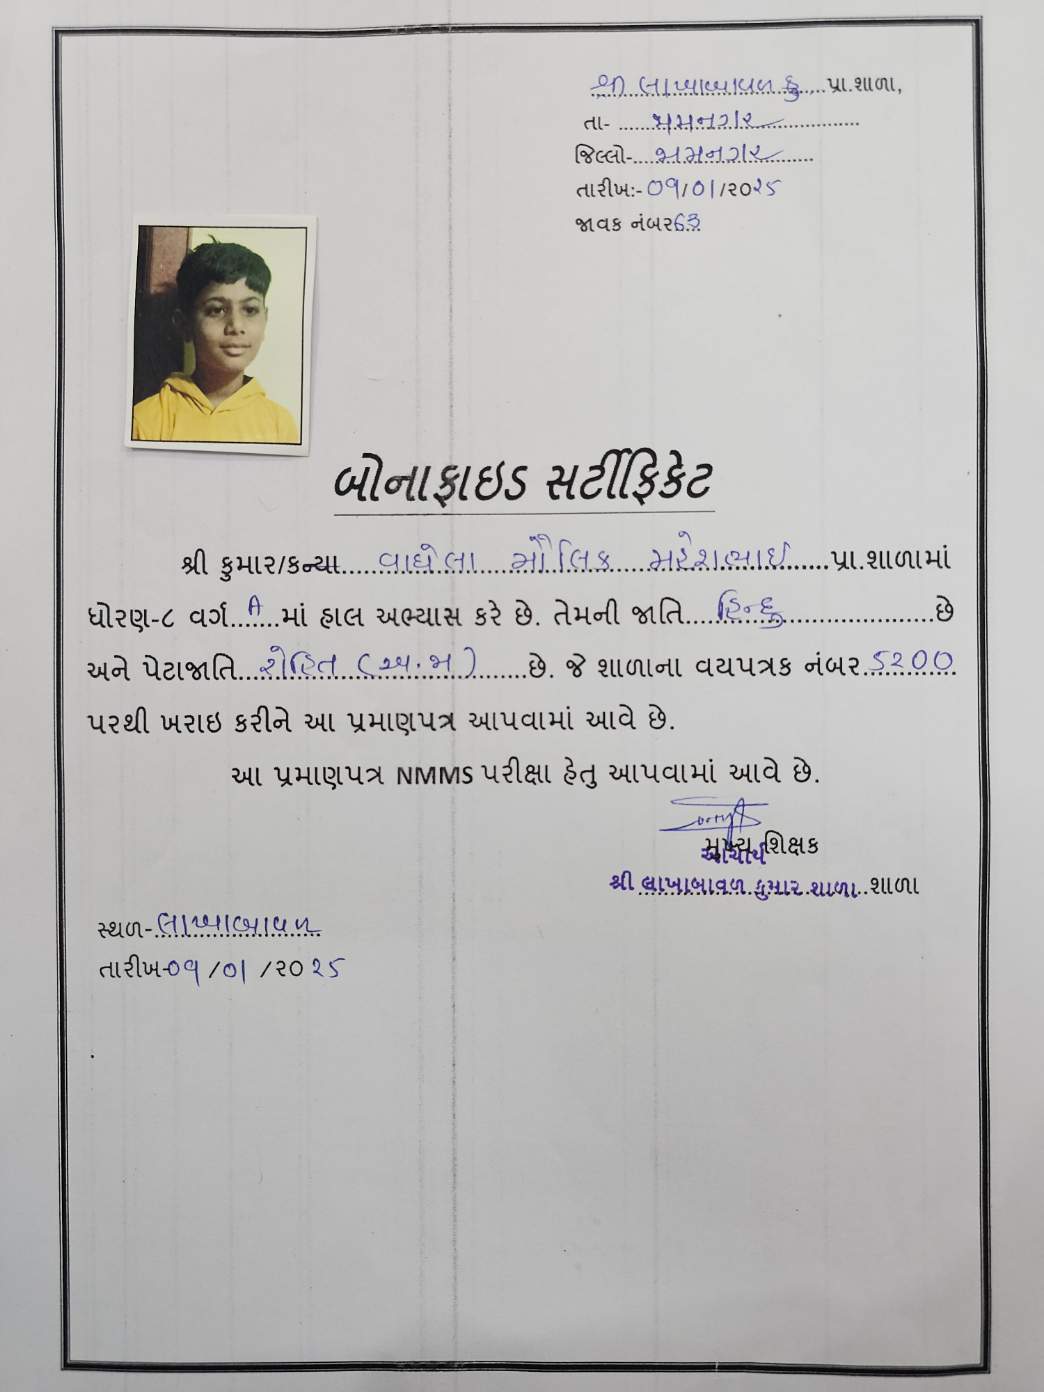 શ્રી લાખાબાવળ કુ.....પ્રા.શાળા,
તા- .....જામનગર.....
જિલ્લો-....જામનગર.....
તારીખ:- ૦૧/૦૧/૨૦૨૫
જાવક નંબર૬૩
બોનાફાઇડ સર્ટીફિકેટ
શ્રી કુમાર/કન્યા.....વાઘેલા મૌલિક મહેશભાઇ.....પ્રા.શાળામાં
ધોરણ-૮ વર્ગ..A....માં હાલ અભ્યાસ કરે છે. તેમની જાતિ....હિન્દુ.....છે
અને પેટાજાતિ...રોહિત (અ.જા).....છે. જે શાળાના વયપત્રક નંબર.૬૨૦૦
પરથી ખરાઇ કરીને આ પ્રમાણપત્ર આપવામાં આવે છે.
આ પ્રમાણપત્ર NMMS પરીક્ષા હેતુ આપવામાં આવે છે.
મુખ્ય શિક્ષક
આચાર્ય
શ્રી લાખાબાવળ કુમાર શાળા..શાળા
સ્થળ-લાખાબાવળ
તારીખ-૦૧/૦૧/૨૦૨૫